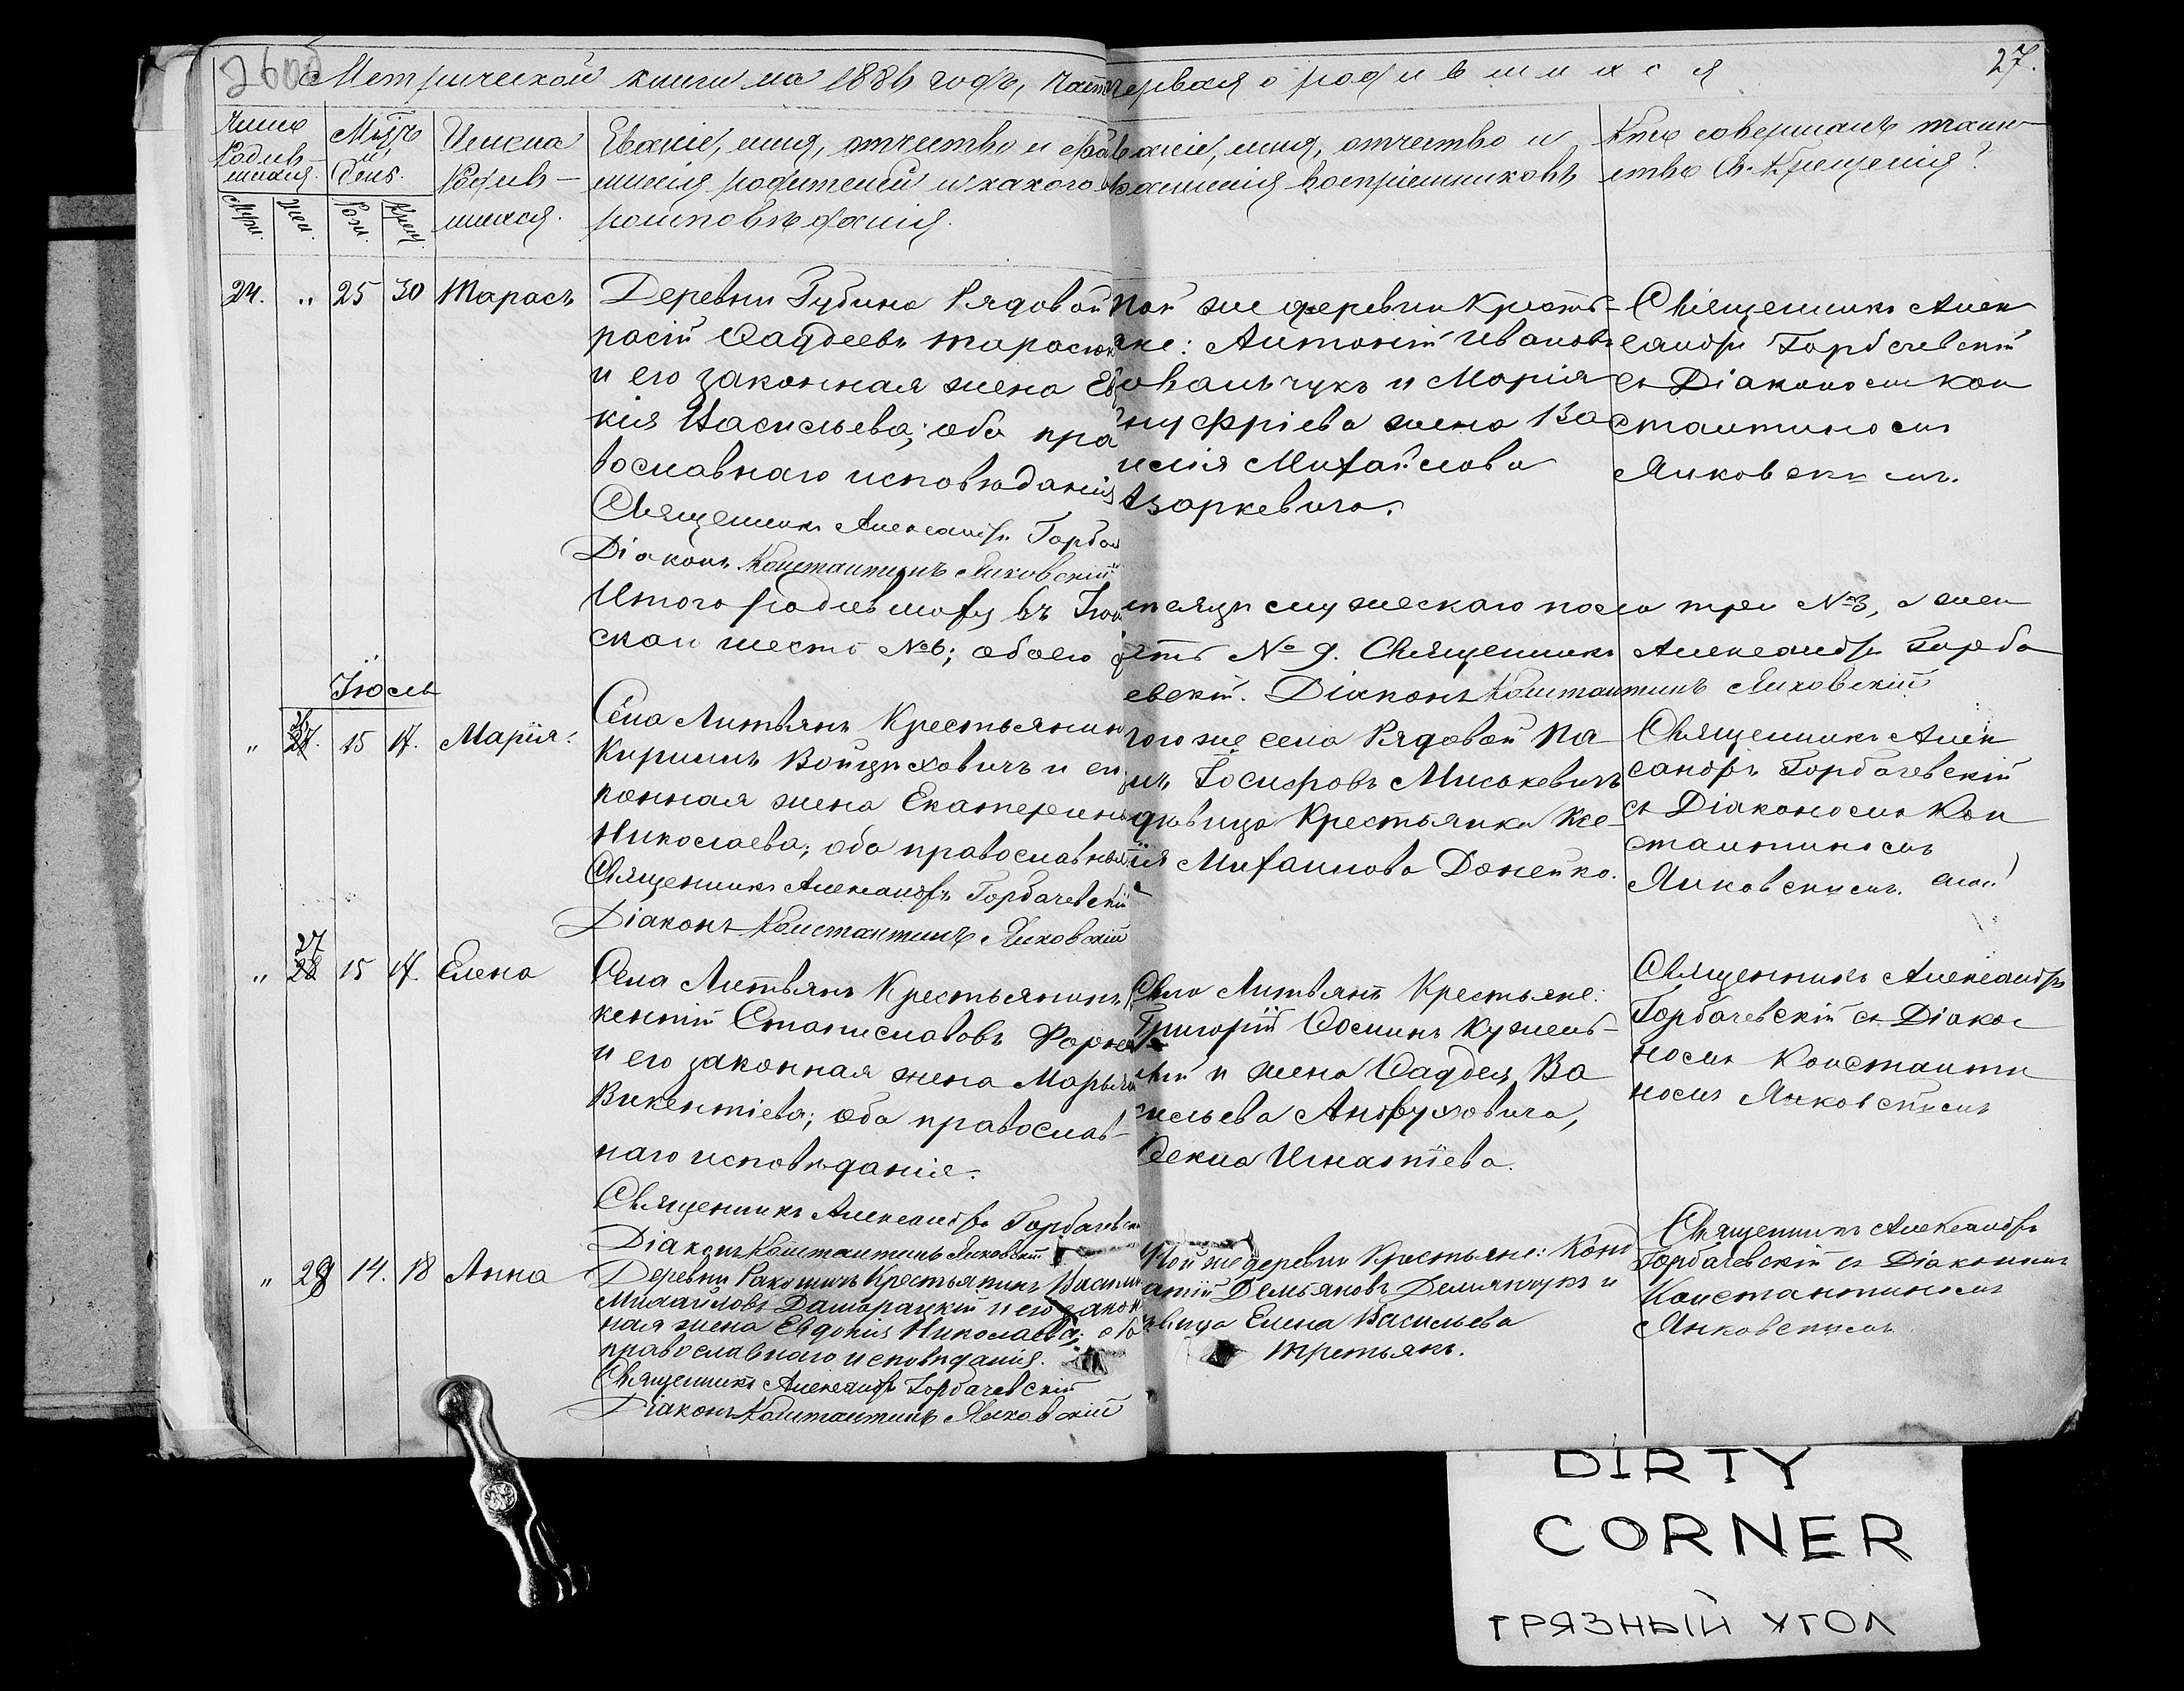 Метрической книги на 1886 годъ, часть первая о родившихся 27.
Число Родившихся. Муж. Жен.
Мѣсяцъ и День. Рож. Крещ.
Имена Родившихся.
Званіе, имя, отчество и фамилія родителей и какого вѣроисповѣданія.
Званіе, имя, отчество и фамилія воспріемниковъ
Кто совершалъ таинство Св. Крещенія?
24. „ 25 30 Тарасъ
Деревни Губина Рядовой
расій Фаддеевъ Тарасюкъ
и его законная жена Ев
кія Васильева; оба пра
вославнаго исповѣданія
Священникъ Александръ Горбач
Діаконъ Константинъ Янковскій
Той же деревни Кресть-
яне: Антоній Ивановъ
овальчукъ и Марія
нуфріева жена Ва
силія Михайлова
Азаркевича.
Священникъ Алек
сандръ Горбачевскій
съ Діакономъ Кон
стантиномъ
Янковскимъ.
Итого родившихся въ Іюнѣ мѣсяцѣ мужескаго пола три №3, а жен
скаго шесть №6; обоего девять №9. Священникъ Александръ Горба
чевскій. Діаконъ Константинъ Янковскій
Іюль
„ 26 27. 15 17. Марія.
Села Литвянъ Крестьянинъ
Кириллъ Войцѣховичъ и его
конная жена Екатерина
Николаева; оба православные
Священникъ Александръ Горбачевскій
Діаконъ Константинъ Янковскій
того же села Рядовой Па
Іосифовъ Миськевичъ
дѣвица Крестьянка Ксе-
нія Михаилова Донейко.
Священникъ Алек
сандръ Горбачевскій
съ Діакономъ Кон
стантиномъ
Янковскимъ.
„ 27 28 15 17. Елена
Села Литвянъ Крестьянинъ
кентій Станиславовъ
и его законная жена Марья
Викентіева; оба православ-
наго исповѣданія.
Священникъ Александръ Горбачевскій
Діаконъ Константинъ Янковскій
Села Литвянъ Крестьяне:
Григорій Фоминъ Кужель-
ный и жена Фаддея Ва
сильева Андруховича,
Фекла Игнатіева.
Священникъ Александръ
Горбачевскій съ Діако-
номъ Константи
номъ Янковскимъ
„ 28 14. 18 Анна
Деревни Ракошичъ Крестьянинъ Васил
Михайловъ Даморацкій и его закон
ная жена Евдокія Николаева; оба
православнаго исповѣданія.
Священникъ Александръ Горбачевскій
Діаконъ Константинъ Янковскій
Той же деревни Крестьяне: Конд
ратій Демьяновъ Демянчукъ и
дѣвица Елена Васильева
Третьякъ.
Священникъ Александръ
Горбачевскій съ Діакономъ
Константиномъ
Янковскимъ
DIRTY
CORNER
ГРЯЗНЫЙ УГОЛ